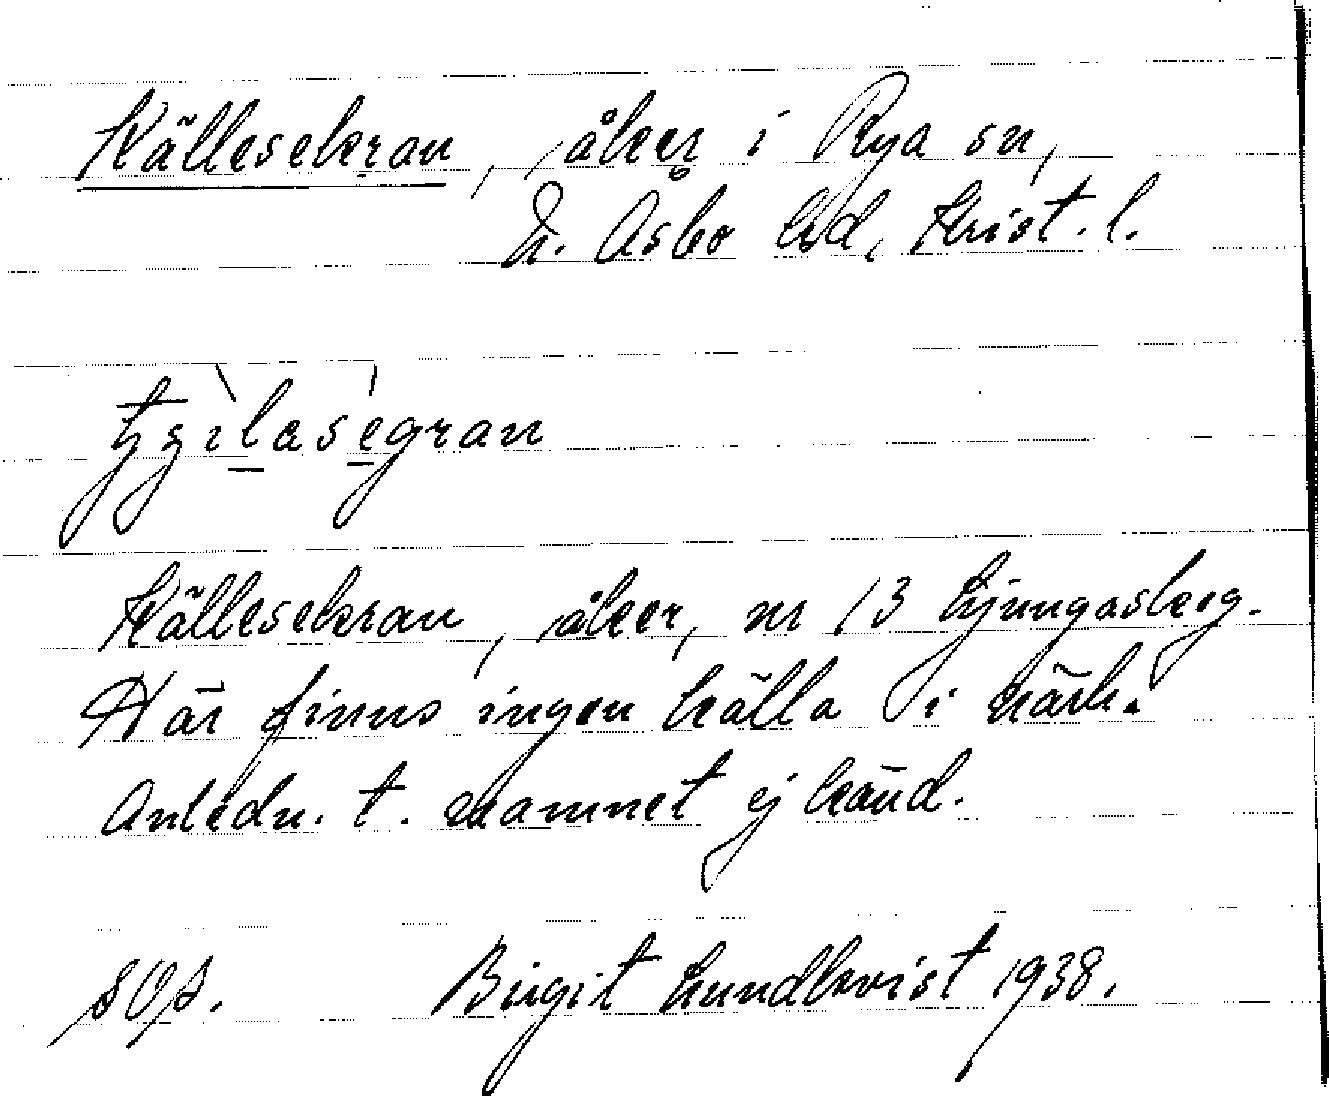 Källesekran, åker i Rya sn,
N. Åsbo hd, Krist. l.
Källesekran, åker, nr 13 Ljungaskog.
Här finns ingen källa i närh.
Anledn. t. namnet ej känd.
SOS. Birgit Lundkvist 1938.